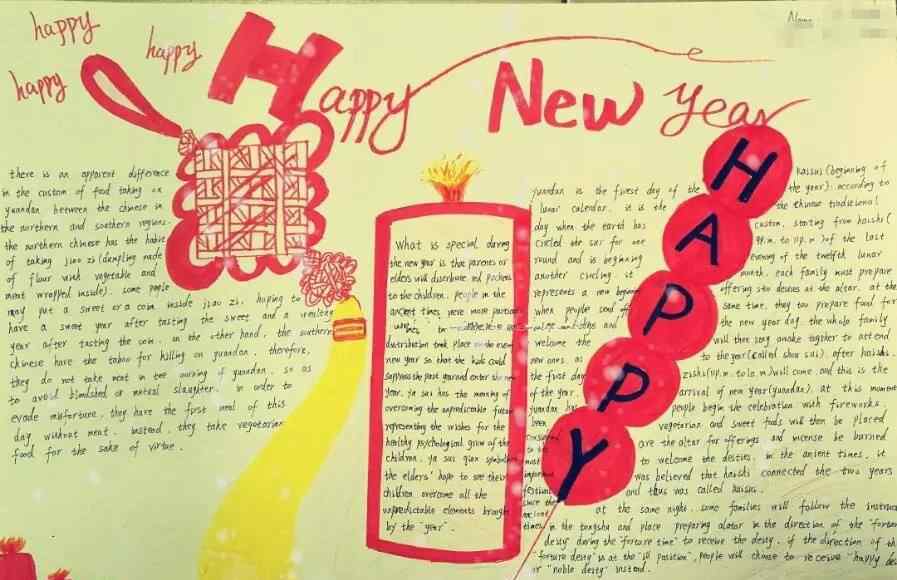 happy
happy
happy
Happy New Year
Name
HAPPY
there is an apparent difference
in the custom of food taking on
yuandan between the chinese in
the northern and southern regions.
the northern chinese has the habit
of taking jiao zi (dumpling made
of flour with vegetable and
meat wrapped inside). some people
may put a sweet or a coin inside jiao zi, hoping to
have a sweet year after tasting the sweet and a wealthy
year after tasting the coin. on the other hand, the southern
chinese have the taboo for killing on yuandan. therefore,
they do not take meat in the morning of yuandan, so as
to avoid bloodshed or metal slaughter. in order to
evade misfortune, they have the first meal of this
day without meat. instead, they take vegetarian
food for the sake of virtue.
What is special during
the new year is that parents or
elders will distribute red packets
to the children. people in the
ancient times were more particular
distribution took place on the even
new year so that the kids could
suppress the past year and enter the new
year. ya sui has the meaning of
overcoming the unpredictable future
representing the wishes for the
healthy psychological grow of the
children. ya sui qian symbolize
the elders' hope to see their
children overcome all the
unpredictable elements brought
by the "year".
yuandan is the first day of the
lunar calendar. it is the
day when the earth has
circled the sun for one
round and is beginning
another circling. it
represents a new beginning
when people send off
old and
welcome the
new ones. as
the first day
of the year,
yuandan has
been
considered
to be
most
important
festival
since the
ancient
times.
haissi (beginning of
the year): according to
the chinese traditional
custom, starting from haishi (
9p.m. to 11p.m.) of the last
evening of the twelfth lunar
month, each family must prepare
offering to deities at the altar. at the
same time, they too prepare food for
the new year day. the whole family
will then stay awake together to attend
to the year (called shou sui). after haishi,
zishi (11p.m. to 1a.m.) will come, and this is the
arrival of new year (yuandan). at this moment
people begin the celebration with fireworks.
vegetarian and sweet foods will then be placed
are the altar for offerings and incense be burned
to welcome the deities. in the ancient times, it
was believed that haishi connected the two years
and thus was called haisui.
at the same night, some families will follow the instruc
in the tongshu and place preparing alator in the direction of the "fortune
deity" during the "fortune time" to receive the deity. if the direction of th
"fortune deity" is at the "ill position", people will choose to receive "happy de
or "noble deity" instead.